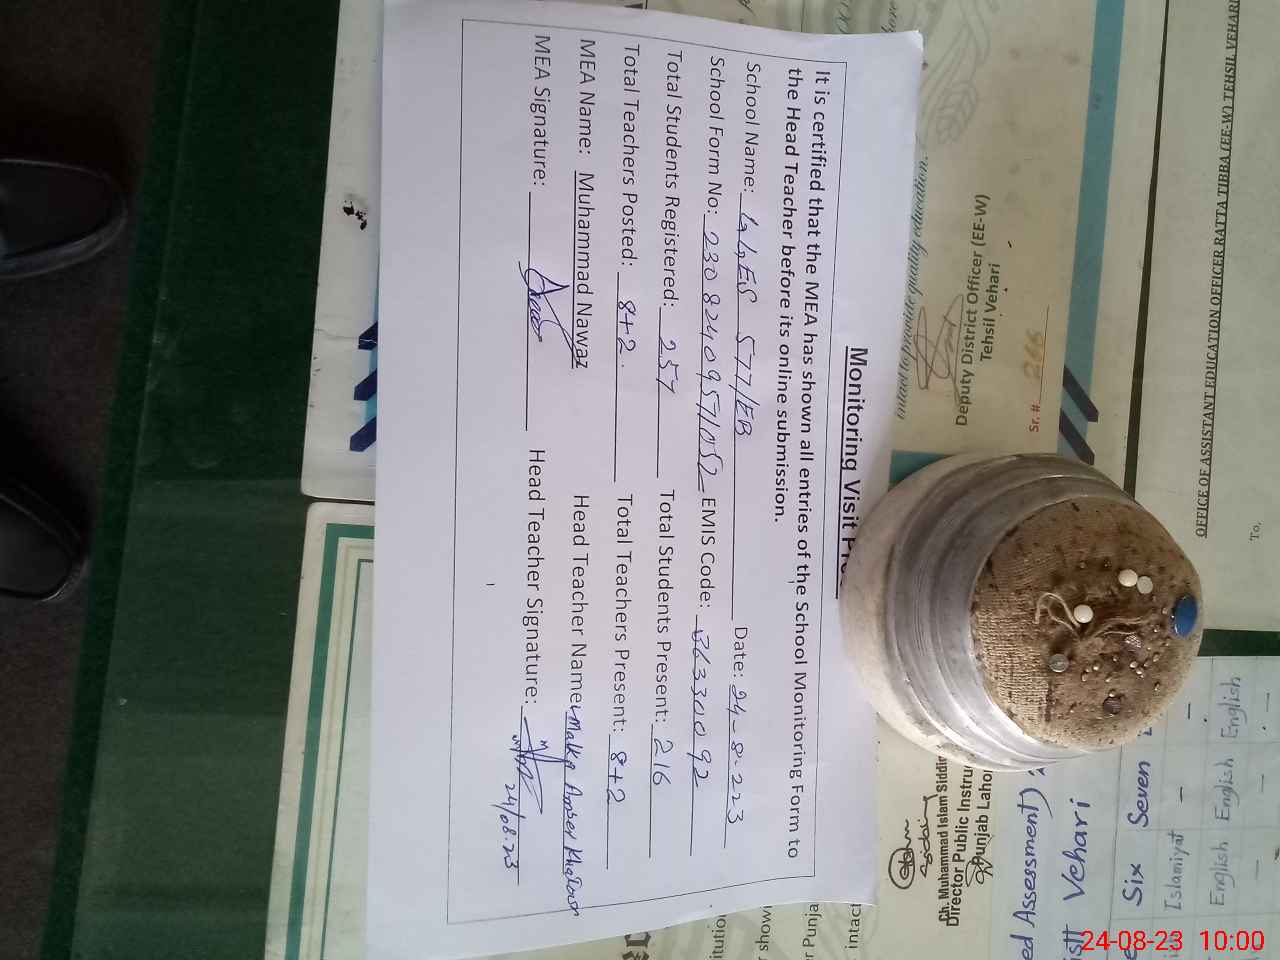 Monitoring Visit
It is certified that the MEA has shown all entries of the School Monitoring Form to
the Head Teacher before its online submission.
School Name: GGES 577/EB Date: 24-8-223
School Form No: 230824095/052 EMIS Code: 36330092
Total Students Registered: 257 Total Students Present: 216
Total Teachers Posted: 8+2 Total Teachers Present: 8+2
MEA Name: Muhammad Nawaz Head Teacher Name: Malka Amber Khatoon
MEA Signature: Head Teacher Signature: 24/08.23
Deputy District Officer (EE-W)
Tehsil Vehari
Sr. # 266
OFFICE OF ASSISTANT EDUCATION OFFICER RATTA TIBBA (EE-W) TEHSIL VEHARI
To,
Ch. Muhammad Islam Siddi
Director Public Instru
Punjab Lahor
ed Assessment)
Vehari
Six Seven
Islamiyat - -
English English English
24-08-23 10:00